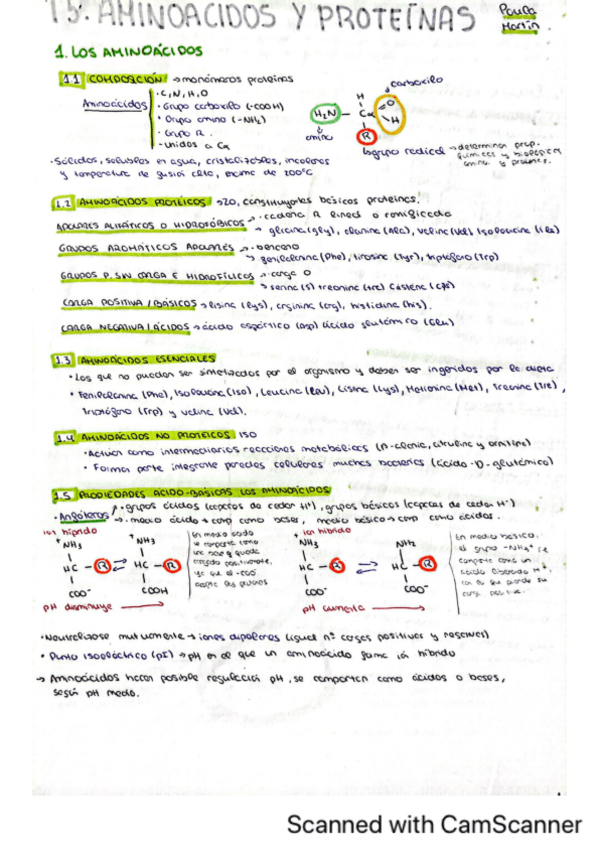 T5: AMINOÁCIDOS Y PROTEÍNAS
Paula Martín
1. LOS AMINOÁCIDOS
1.1 COMPOSICIÓN → monómeros proteínas
Aminoácidos
· C, N, H, O
· Grupo carboxilo (-COOH)
· Grupo amino (-NH2)
· Grupo R.
· Unidos a Cα
carboxilo
H
H2N — Cα
O
H
R
amino
grupo radical → determinan prop. químicas y biológicas
· Sólidos, solubles en agua, cristalizables, incoloros
y temperatura de fusión alta, encima de 200°C
1.2 AMINOÁCIDOS PROTEICOS → 20, constituyentes básicos proteínas.
APOLARES ALIFÁTICOS O HIDROFÓBICOS → · cadena R lineal o ramificada
→ glicina (Gly), alanina (Ala), valina (Val) Isoleucina (Ile)
GRUPOS AROMÁTICOS APOLARES → · benceno
→ fenilalanina (Phe), tirosina (Tyr), triptófano (Trp)
GRUPOS P. SIN CARGA E HIDROFÍLICOS → · carga 0
→ serina (S) treonina (tre) cisteína (cys)
CARGA POSITIVA / BÁSICOS → lisina (lys), arginina (arg), histidina (his).
CARGA NEGATIVA / ÁCIDOS → ácido aspártico (asp) ácido glutámico (Glu)
1.3 AMINOÁCIDOS ESENCIALES
· Los que no pueden ser sintetizados por el organismo y deben ser ingeridos por la dieta
· Fenilalanina (Phe), Isoleucina (Iso), Leucina (Leu), Lisina (Lys), Metionina (Met), Treonina (Tre),
Triptófano (Trp) y valina (Val).
1.4 AMINOÁCIDOS NO PROTEICOS 150
· Actúan como intermediarios reacciones metabólicas (β-alanina, citrulina y ornitina)
· Forman parte integrante paredes celulares muchas bacterias (ácido -D-glutámico)
1.5 PROPIEDADES ÁCIDO-BÁSICAS LOS AMINOÁCIDOS
· Anfóteros
· grupos ácidos (capaces de ceder H+), grupos básicos (capaces de ceder H-)
→ · medio ácido → comp como bases, medio básico → comp como ácidos.
ion híbrido
+NH3
HC — R
COO-
⇌
+NH3
HC — R
COOH
En medio ácido se comporta como una base y queda cargado positivamente, ya que el -COO-
pH disminuye →
+ ion híbrido
NH3
HC — R
COO-
⇌
NH2
HC — R
COO-
En medio básico, el grupo -NH3+ se comporta como un ácido liberando H+
pH aumenta →
· Neutralizarse mutuamente → iones dipolares (igual nº cargas positivas y negativas)
· Punto Isoeléctrico (pI) → pH en el que un aminoácido forma ión híbrido
→ Aminoácidos hacen posible regulación pH, se comportan como ácidos o bases,
según pH medio.
Scanned with CamScanner